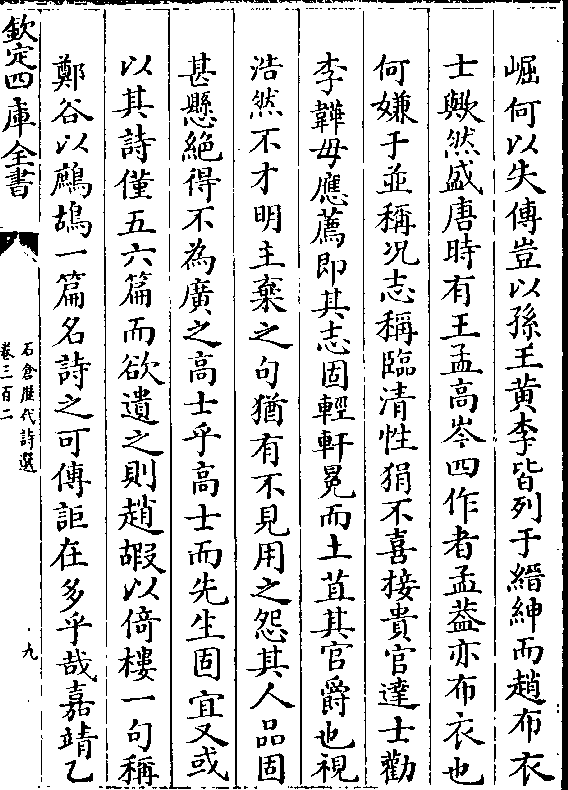 崛何以失傳豈以孫王黄李皆列于縉紳而趙布衣
士歟然盛唐時有王孟高岑四作者孟葢亦布衣也
何嫌于並稱况志稱臨清性狷不喜接貴官達士勸
李韡毋應薦即其志固輕軒冕而土苴其官爵也視
浩然不才明主棄之句猶有不見用之怨其人品固
甚懸絶得不為廣之高士乎高士而先生固宜又或
以其詩僅五六篇而欲遺之則趙嘏以倚樓一句稱
鄭谷以鷓鴣一篇名詩之可傳詎在多乎哉嘉靖乙
欽定四庫全書
石倉歷代詩選
卷三百二
九